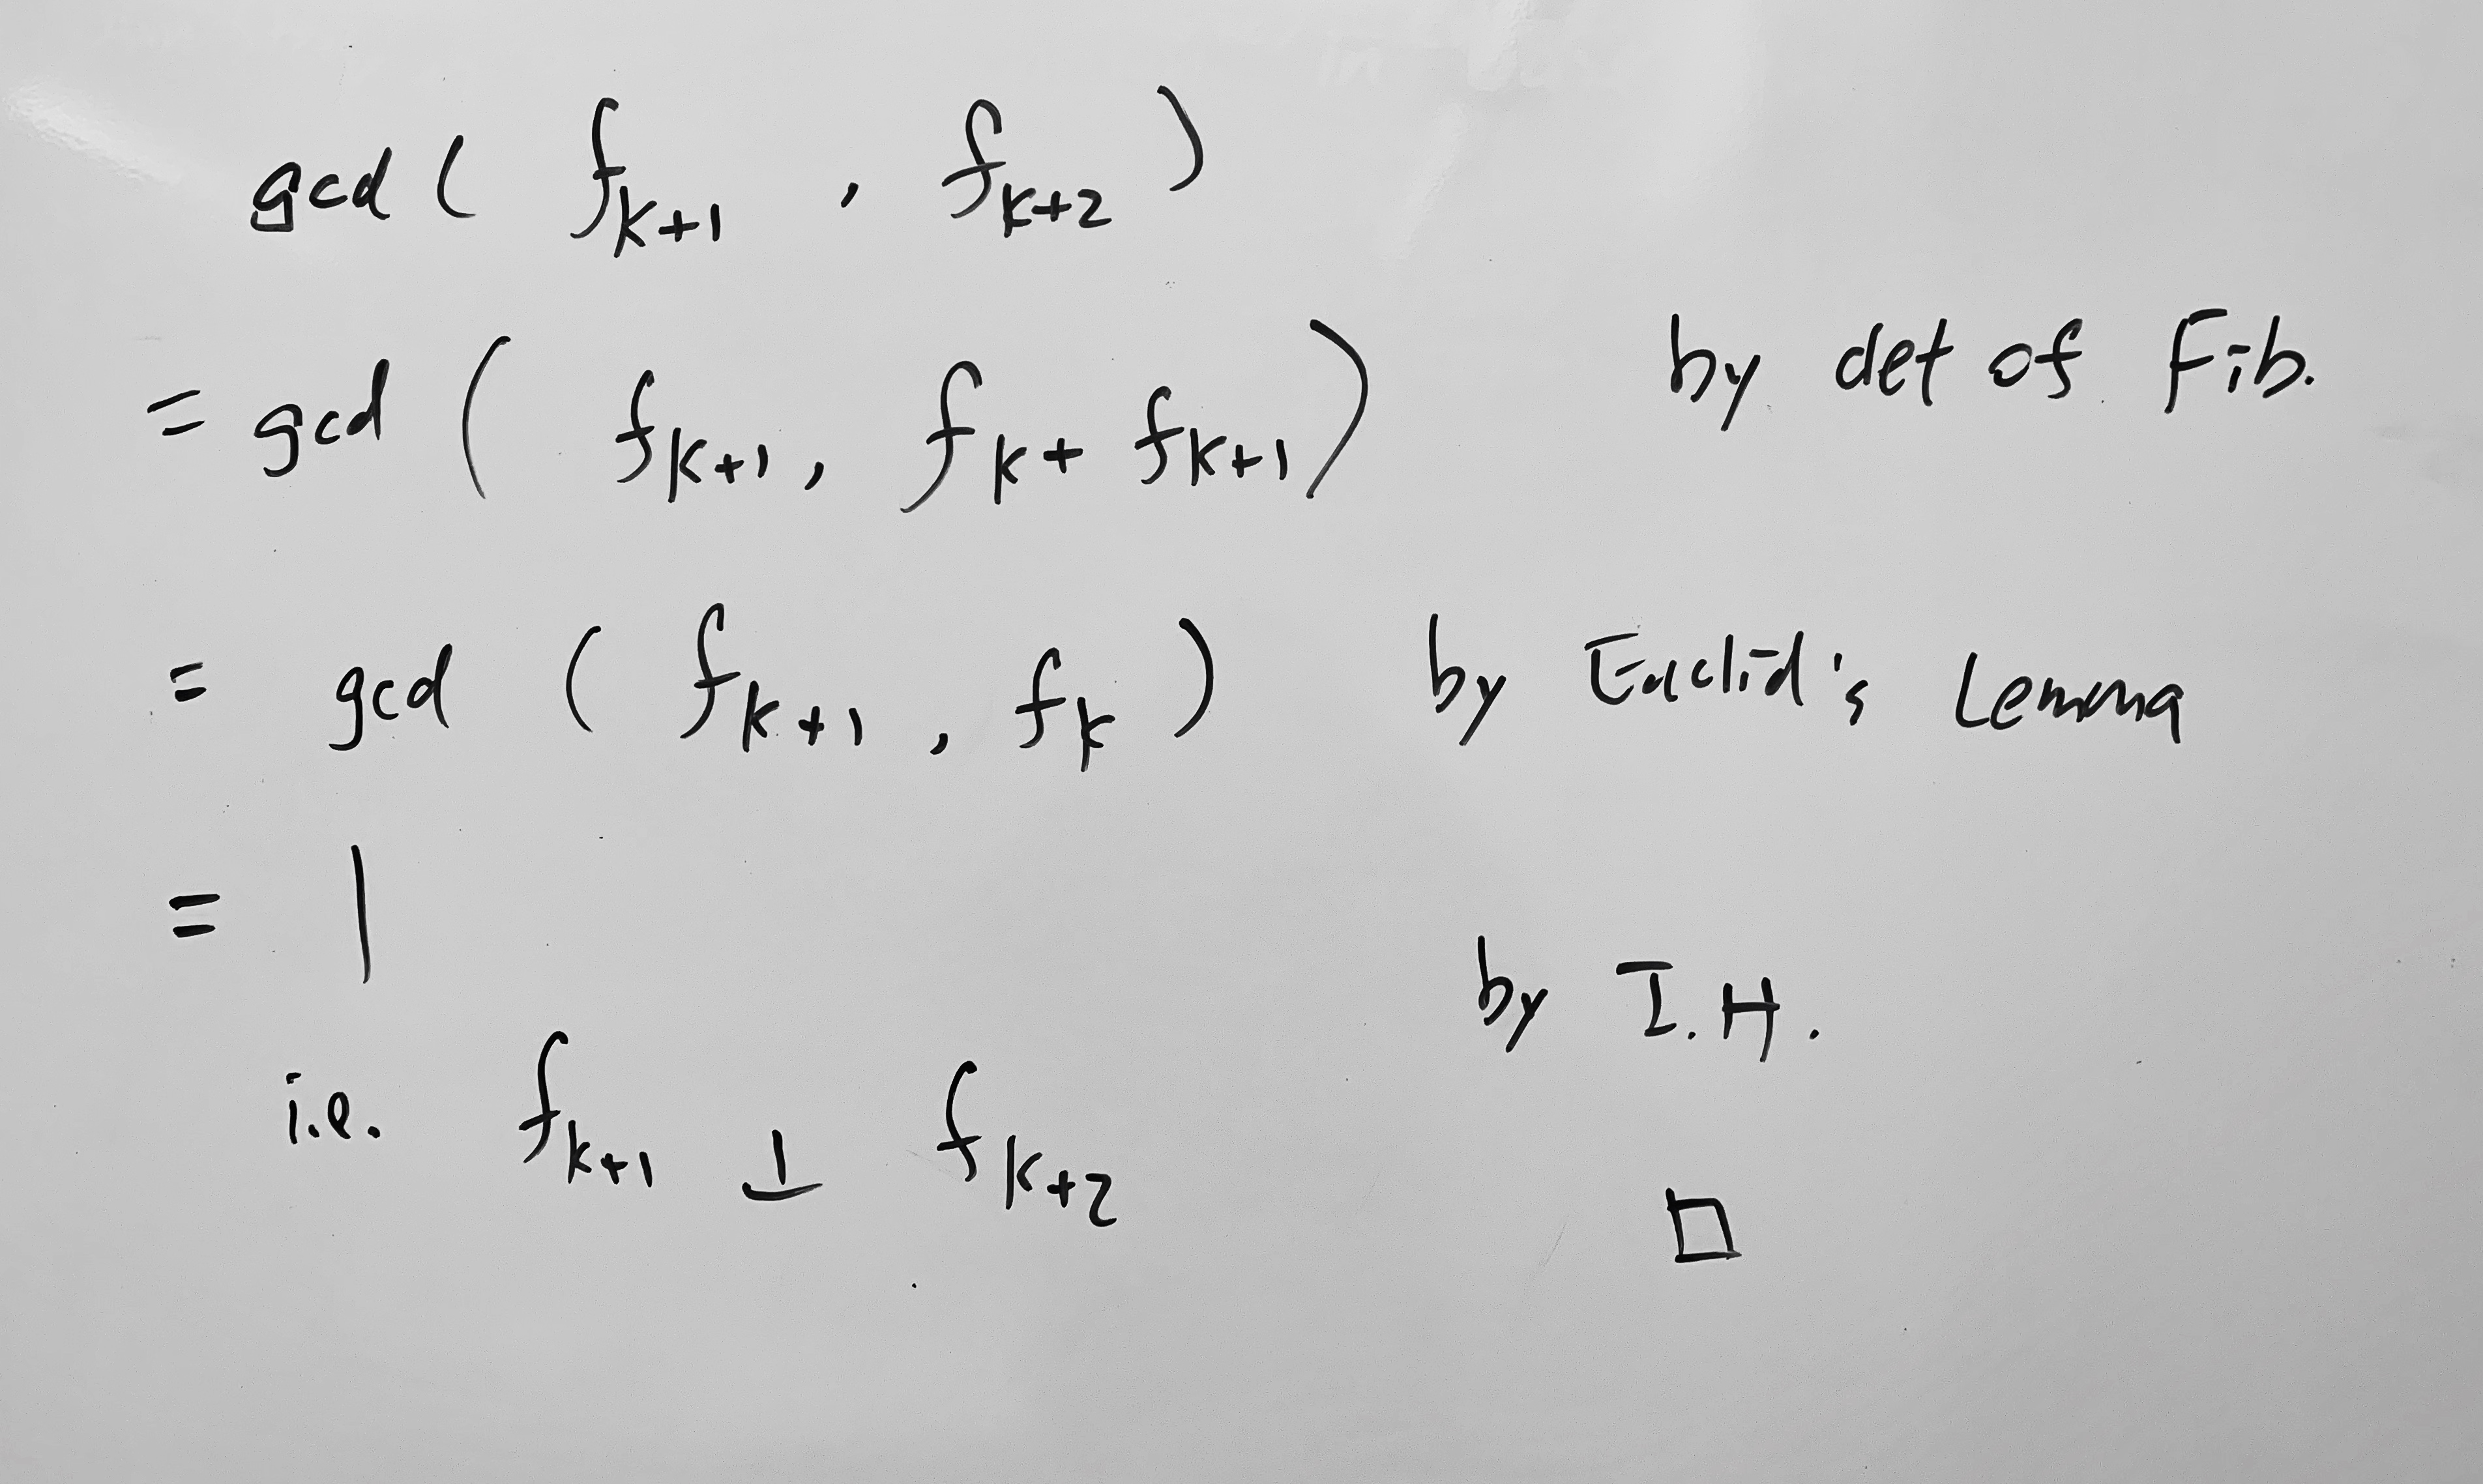 gcd ( f_{k+1} , f_{k+2} )
= gcd ( f_{k+1}, f_k + f_{k+1} ) by def of Fib.
= gcd ( f_{k+1} , f_k ) by Euclid's Lemma
= 1 by I.H.
i.e. f_{k+1} ⊥ f_{k+2} □